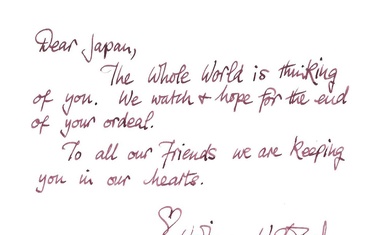 Dear Japan,
The Whole World is thinking
of you. We watch + hope for the end
of your ordeal.
To all our Friends we are keeping
you in our hearts.